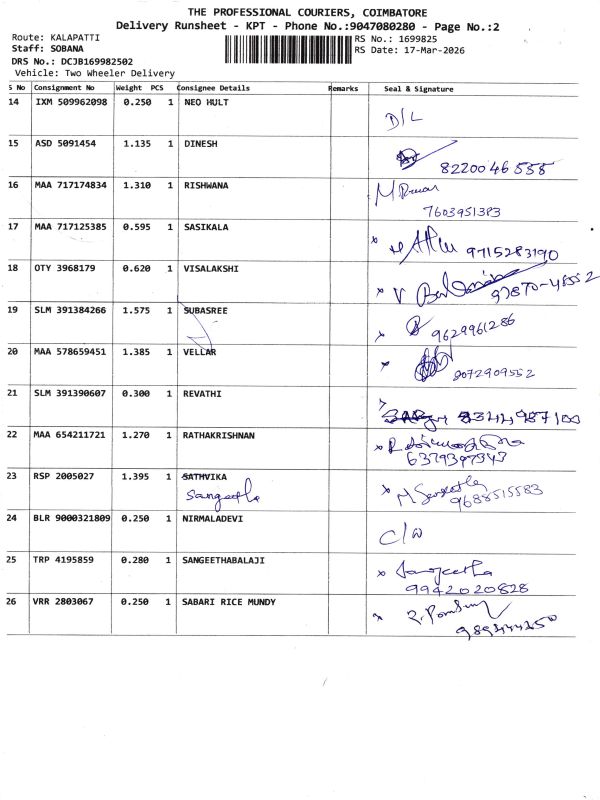 THE PROFESSIONAL COURIERS, COIMBATORE
Delivery Runsheet - KPT - Phone No.:9047080280 - Page No.:2
Route: KALAPATTI
RS No.: 1699825
Staff: SOBANA
RS Date: 17-Mar-2026
DRS No.: DCJB169982502
Vehicle: Two Wheeler Delivery
S No Consignment No Weight PCS Consignee Details Remarks Seal & Signature
14 IXM 509962098 0.250 1 NEO HULT
D/L
15 ASD 5091454 1.135 1 DINESH
8220046555
16 MAA 717174834 1.310 1 RISHWANA
7603951383
17 MAA 717125385 0.595 1 SASIKALA
9715283190
18 OTY 3968179 0.620 1 VISALAKSHI
97870-48552
19 SLM 391384266 1.575 1 SUBASREE
9629961286
20 MAA 578659451 1.385 1 VELLAR
8072909552
21 SLM 391390607 0.300 1 REVATHI
22 MAA 654211721 1.270 1 RATHAKRISHNAN
6379397343
23 RSP 2005027 1.395 1 SATHVIKA
Sangeetha
M Sangeetha
9688515583
24 BLR 9000321809 0.250 1 NIRMALADEVI
C/W
25 TRP 4195859 0.280 1 SANGEETHABALAJI
x Sangeetha
9942020828
26 VRR 2803067 0.250 1 SABARI RICE MUNDY